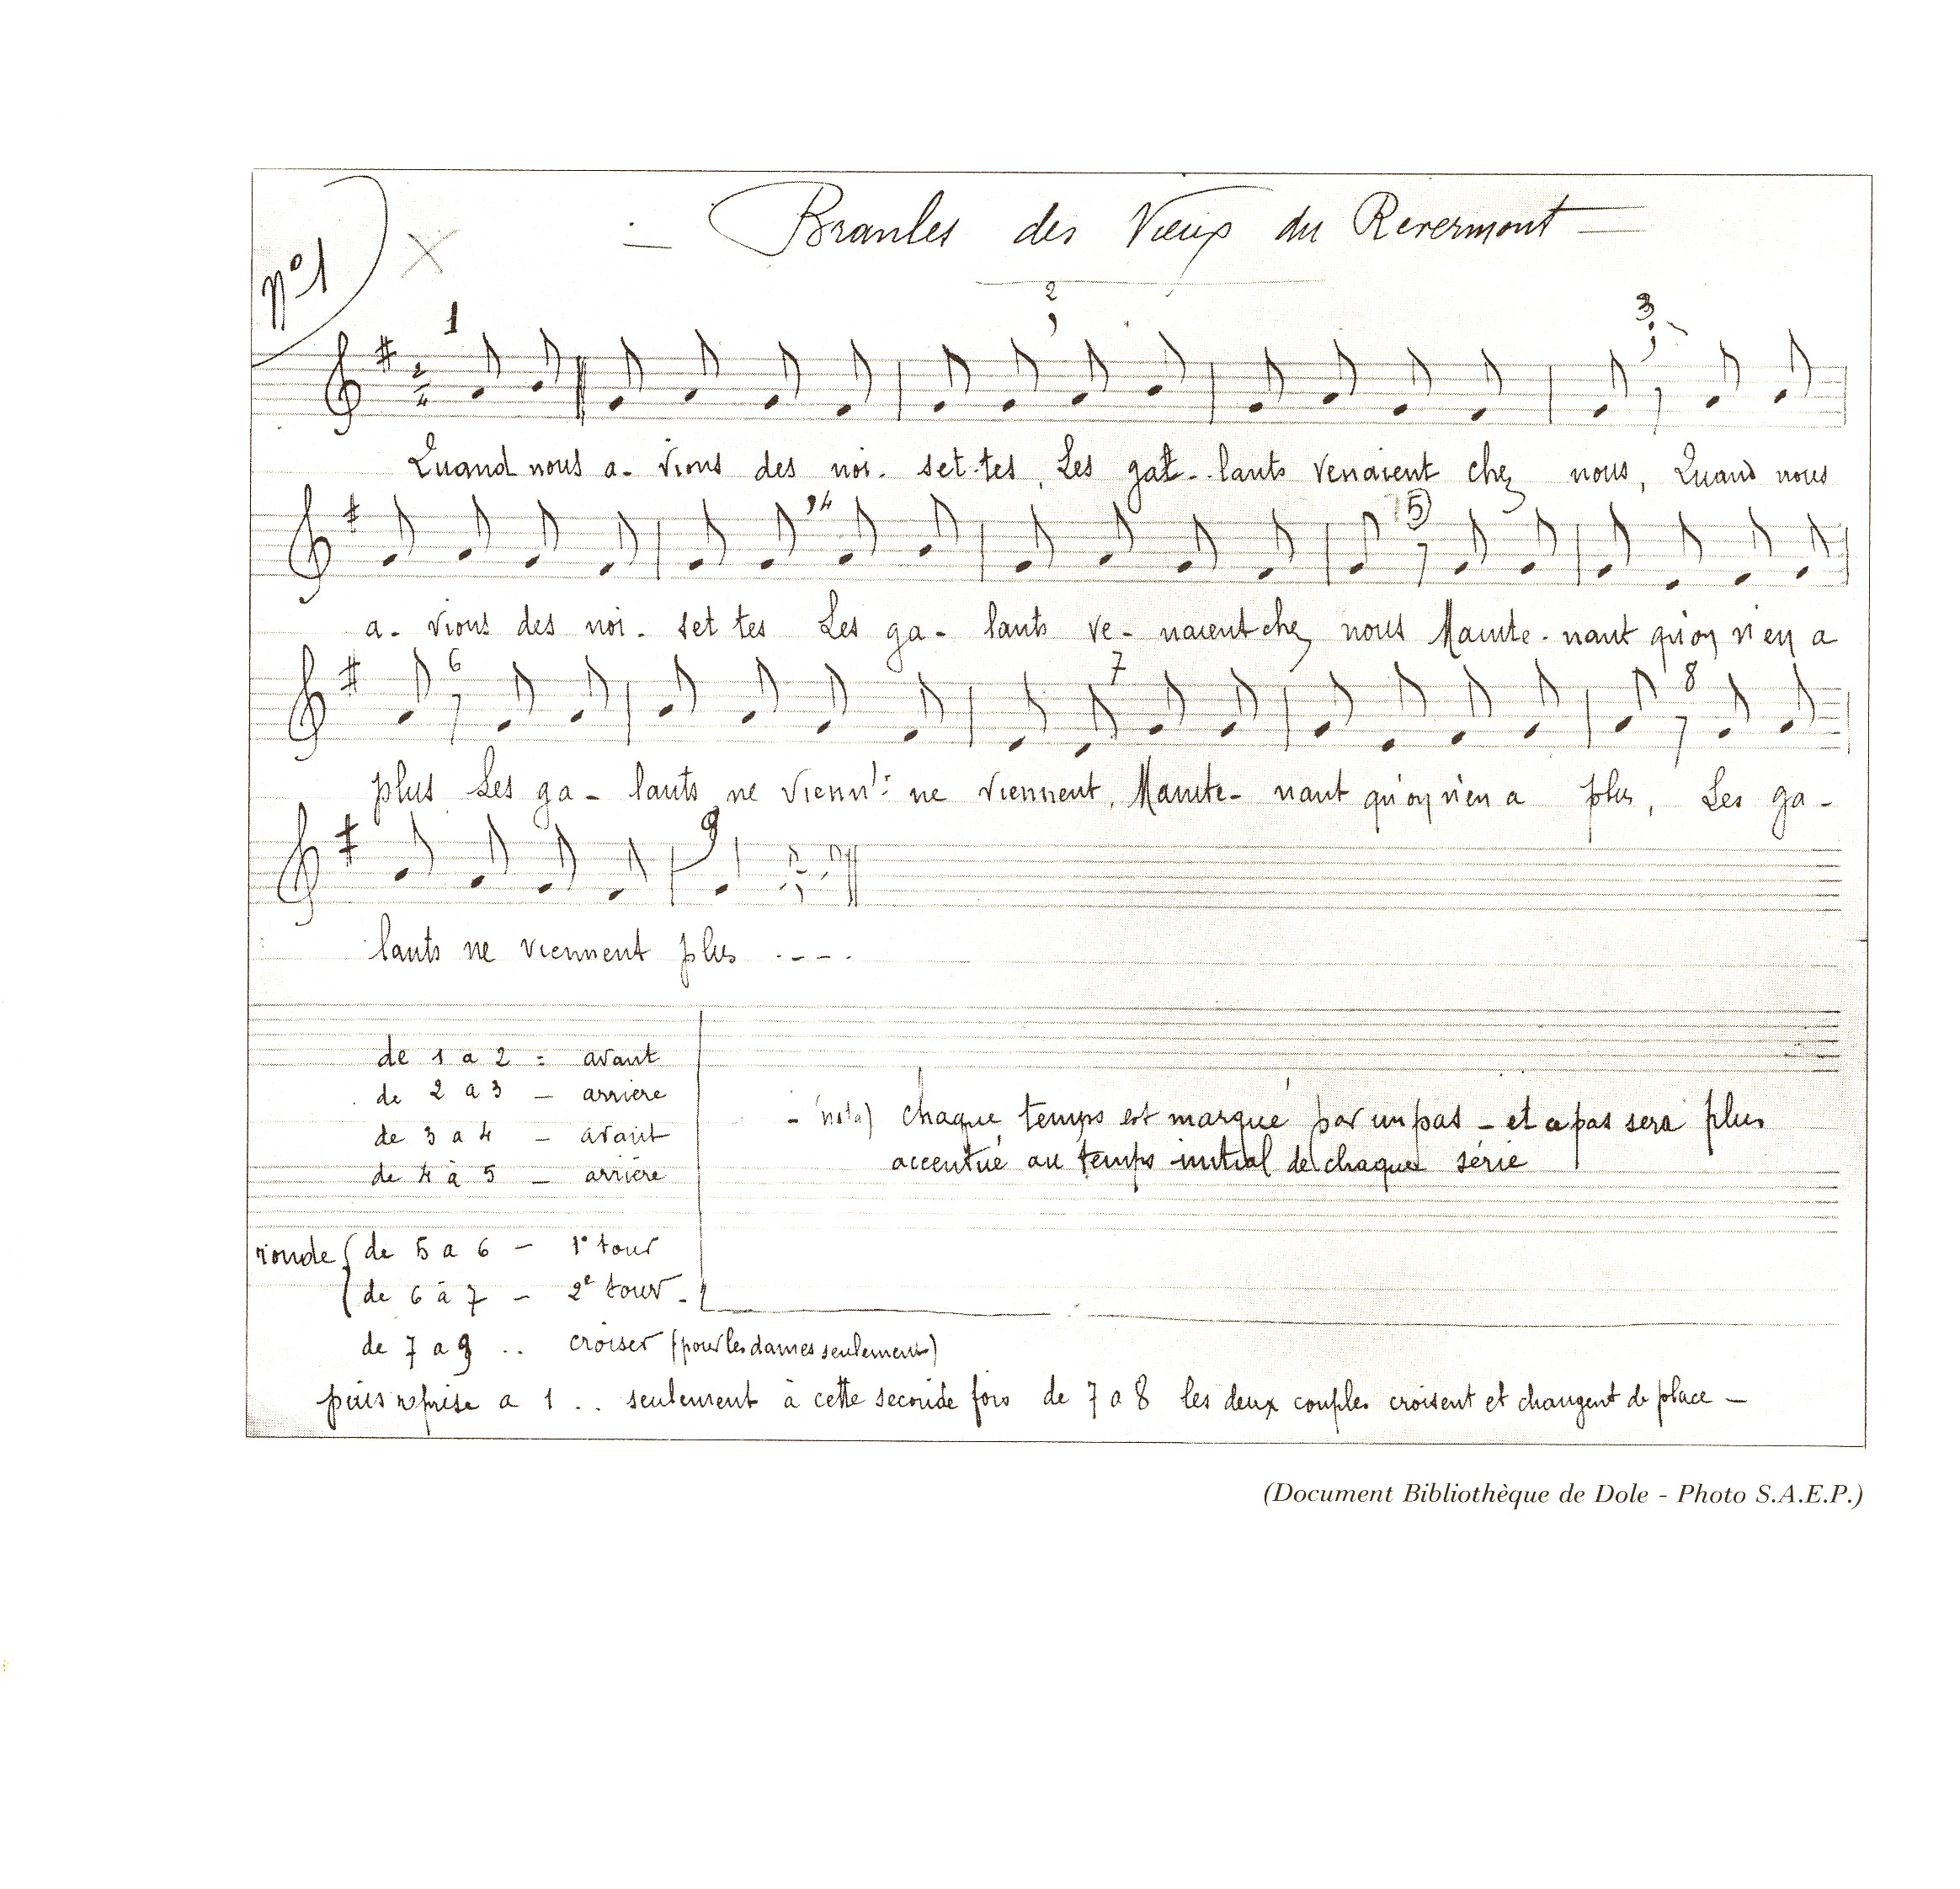 nº1
- Branles des Vieux du Revermont =
1 2 3
Quand nous a- vions des noi- set-tes, Les gal-lants venaient chez nous, Quand nous
4 5
a- vions des noi- set tes Les ga- lants ve- naient chez nous Mainte- nant qu'on n'en a
6 7 8
plus Les ga- lants ne vienn': ne viennent, Mainte- nant qu'on n'en a plus, Les ga-
9
lants ne viennent plus ----
de 1 a 2 = avant
de 2 a 3 - arriere
de 3 a 4 - avant
de 4 à 5 - arriére
- nota) chaque temps est marqué par un pas - et a pas sera plus
accentué au temps initial de chaque série
ronde { de 5 a 6 - 1º tour
de 6 à 7 - 2e tour -
de 7 a 9 .. croiser (pour les dames seulement)
puis reprise a 1 .. seulement à cette seconde fois de 7 a 8 les deux couples croisent et changent de place -
(Document Bibliothèque de Dole - Photo S.A.E.P.)